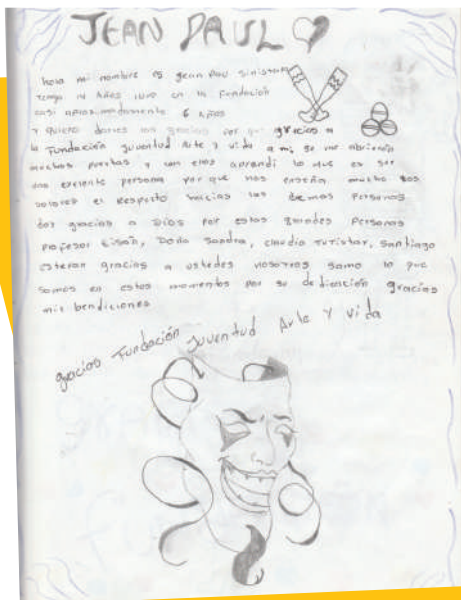 JEAN PAUL
hola mi nombre es Jean Pau Sinistam
Tengo 14 Años llevo en la Fundación
casi aproximadamente 6 años
Y quiero darles las gracias por que gracias a
la Fundación Juventud Arte y vida a mi se me abrieron
muchas puertas y con ellos aprendí lo que es ser
una exelente persona por que nos enseña mucho los
valores el Respecto hacias las demas Personas
doy gracias a Dios por estas grandes Personas
Profesor Eisan, Doña Sandra, claudia Turistar, Santiago
esteran gracias a ustedes nosotros samo lo que
Somos en estos momentos por su dedicación gracias
mil bendiciones
gracias Fundación Juventud Arte Y vida